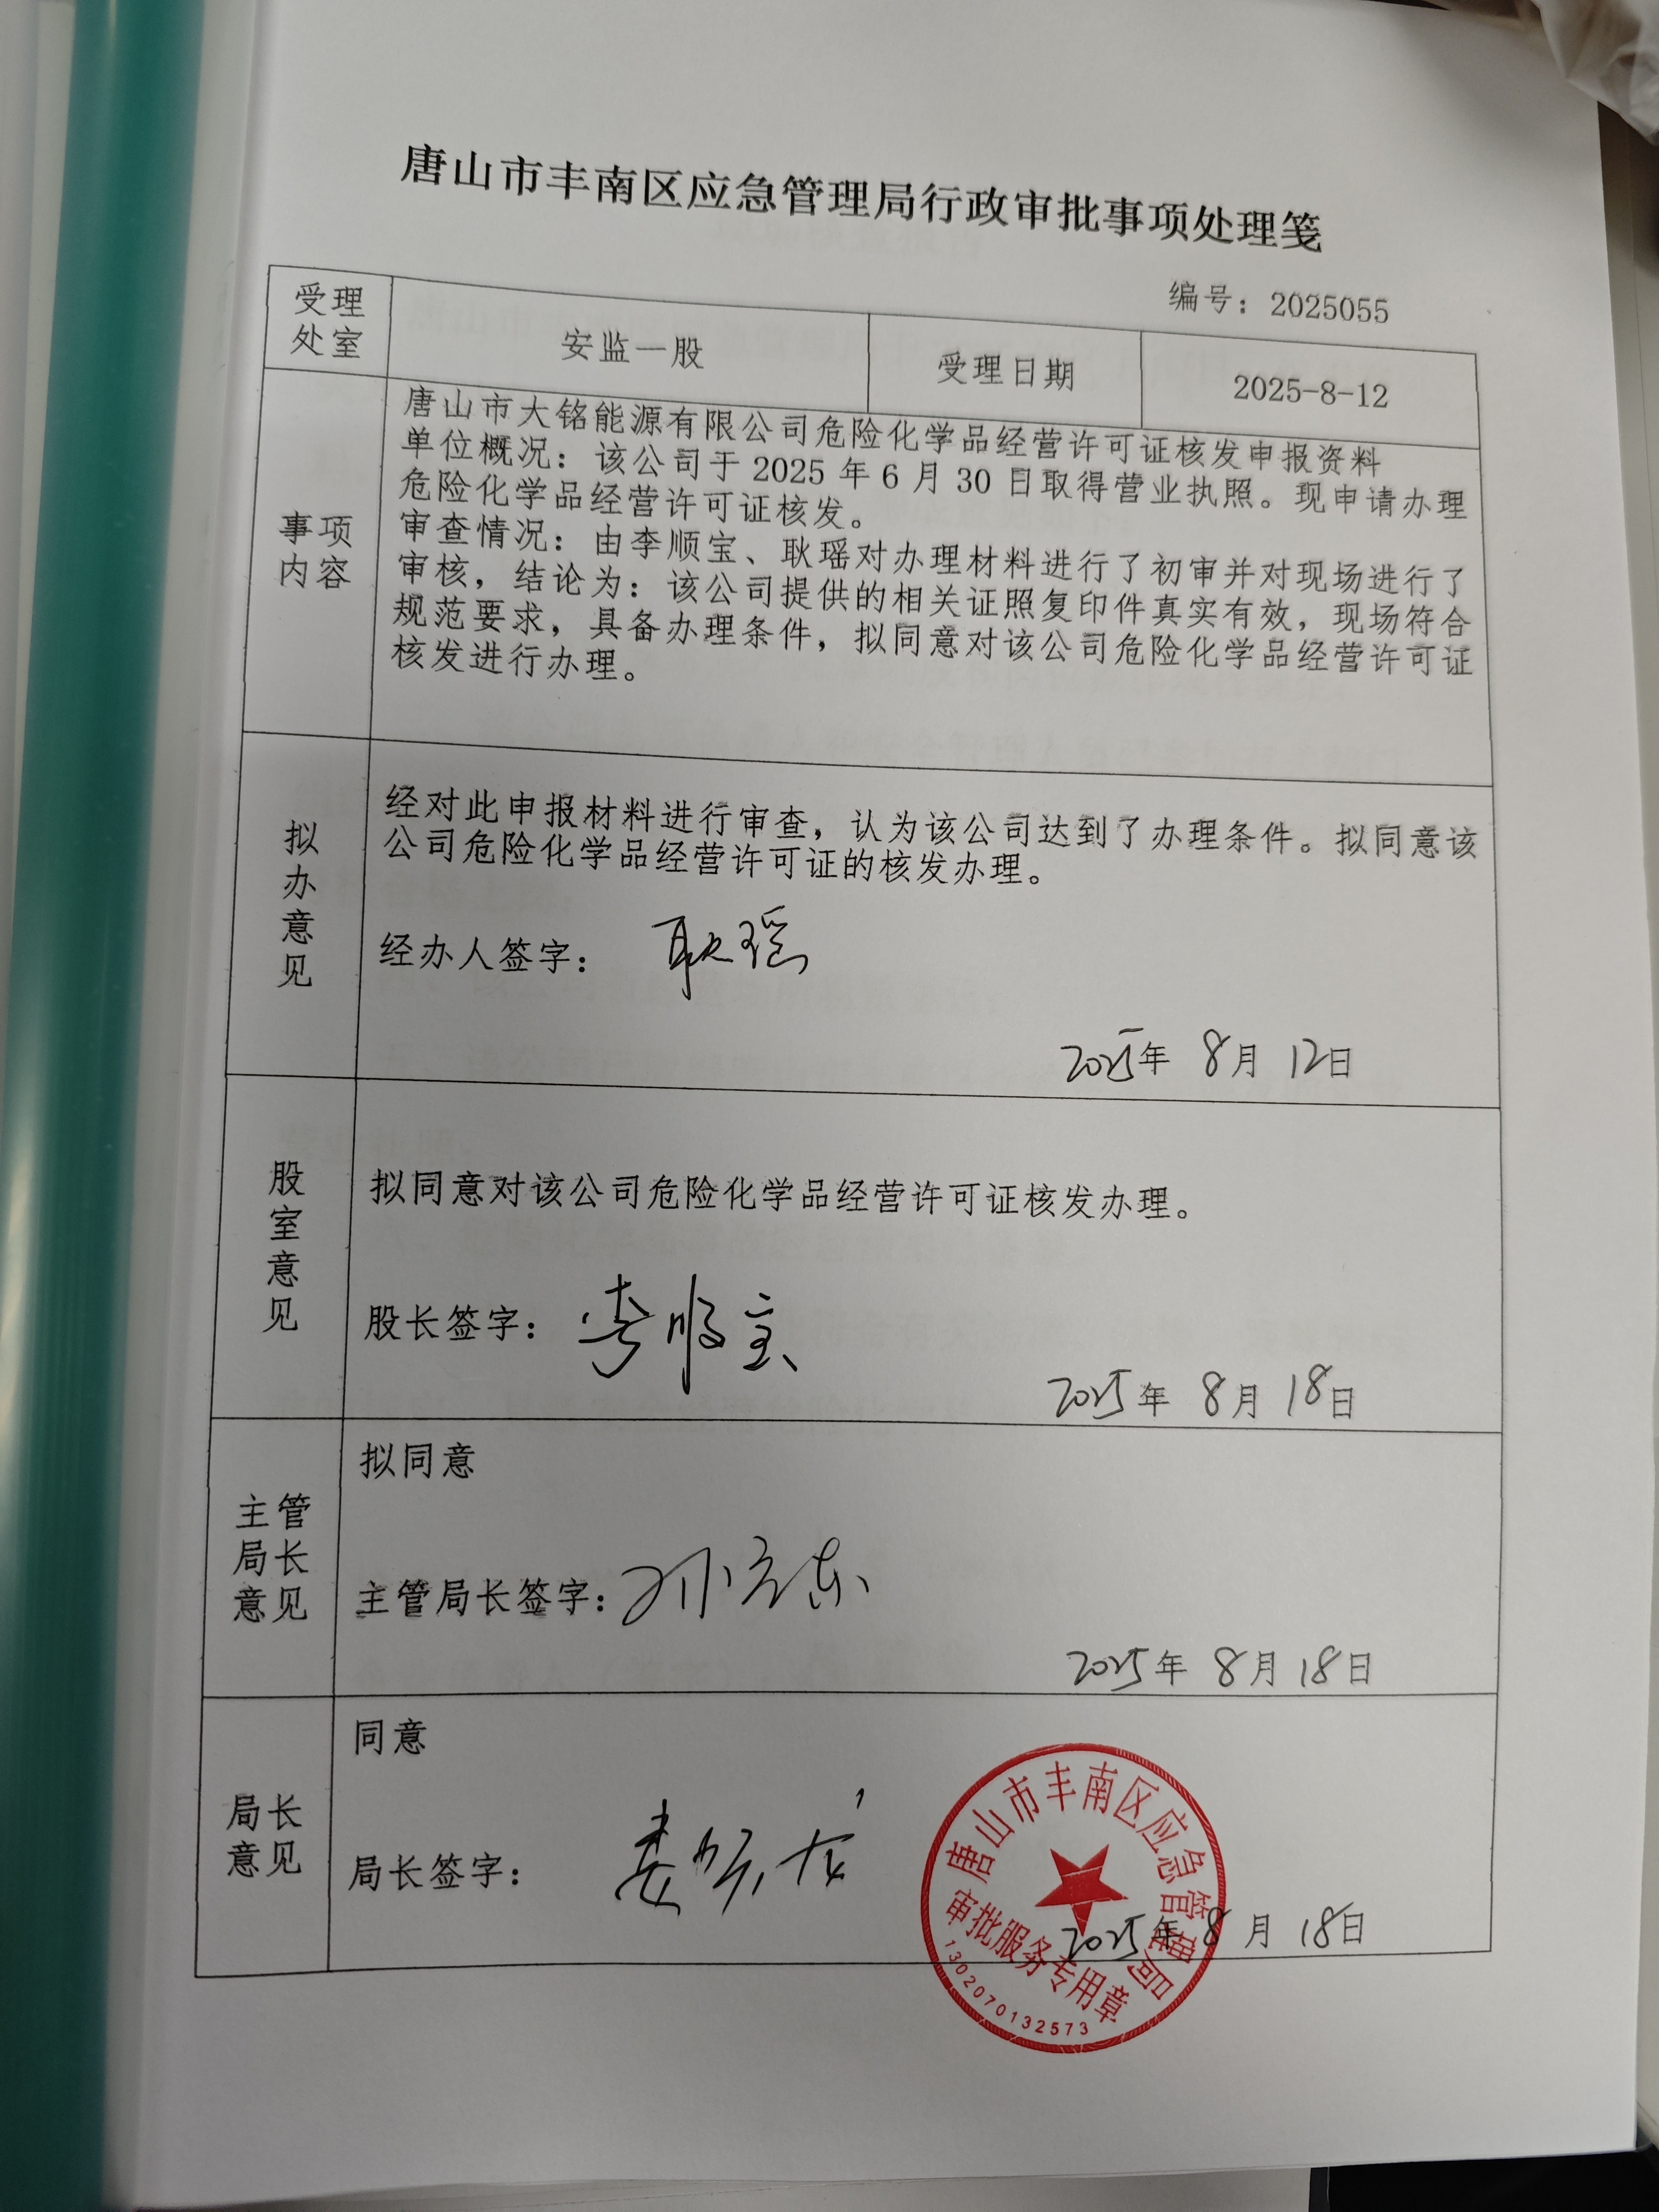 唐山市丰南区应急管理局行政审批事项处理笺
编号：2025055
受理
处室
安监一股
受理日期
2025-8-12
事项
内容
唐山市大铭能源有限公司危险化学品经营许可证核发申报资料
单位概况：该公司于 2025 年 6 月 30 日取得营业执照。现申请办理
危险化学品经营许可证核发。
审查情况：由李顺宝、耿瑶对办理材料进行了初审并对现场进行了
审核，结论为：该公司提供的相关证照复印件真实有效，现场符合
规范要求，具备办理条件，拟同意对该公司危险化学品经营许可证
核发进行办理。
拟
办
意
见
经对此申报材料进行审查，认为该公司达到了办理条件。拟同意该
公司危险化学品经营许可证的核发办理。
经办人签字： 耿瑶
2025年 8月 12日
股
室
意
见
拟同意对该公司危险化学品经营许可证核发办理。
股长签字： 李顺宝
2025年 8月 18日
主管
局长
意见
拟同意
主管局长签字：
2025年 8月 18日
局长
意见
同意
局长签字：
2025年 8月 18日
唐山市丰南区应急管理局
审批服务专用章
1302070132573